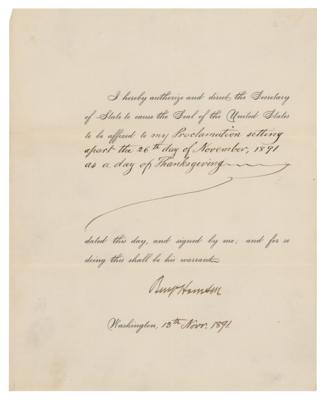 I hereby authorize and direct the Secretary
of State to cause the Seal of the United States
to be affixed to my Proclamation setting
apart the 26th day of November, 1891
as a day of Thanksgiving
dated this day, and signed by me, and for so
doing this shall be his warrant.
Benj Harrison
Washington, 13th Novr. 1891.